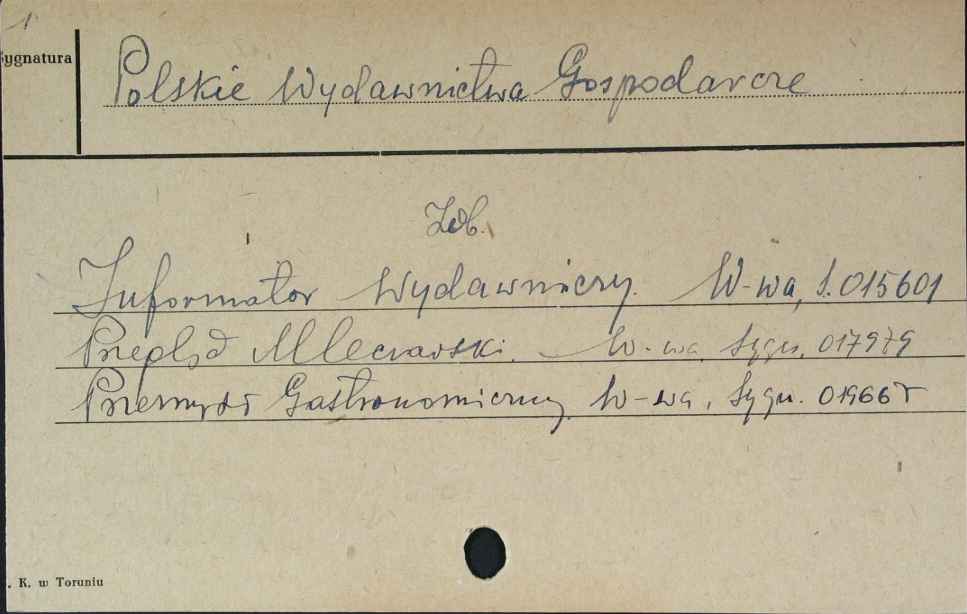 1
Sygnatura
Polskie Wydawnictwa Gospodarcze
Zob.
Informator Wydawniczy. W-wa, S. 015601
Przegląd Mleczarski. – W-wa Sygn. 017979
Przemysł Gastronomiczny W-wa, Sygn. 01966
. K. w Toruniu